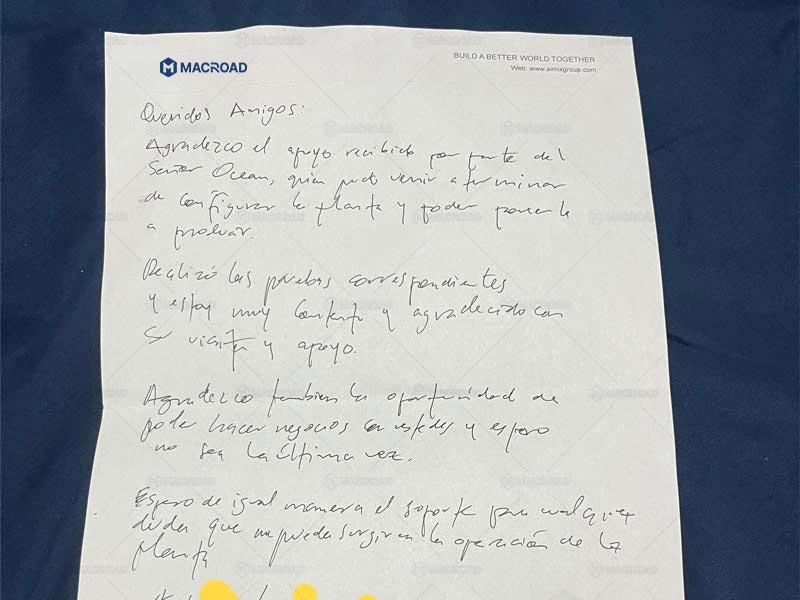 MACROAD
BUILD A BETTER WORLD TOGETHER
Web: www.aimixgroup.com
Queridos Amigos:
Agradezco el apoyo recibido por parte del
Señor Ocean, quien pudo venir a terminar
de configurar la planta y poder ponerla
a producir.
Realizó las pruebas correspondientes
y estoy muy contento y agradecido con
su visita y apoyo.
Agradezco tambien la oportunidad de
poder hacer negocios con ustedes y espero
no sea la última vez.
Espero de igual manera el soporte por cualquier
duda que me pueda surgir en la operación de la
planta